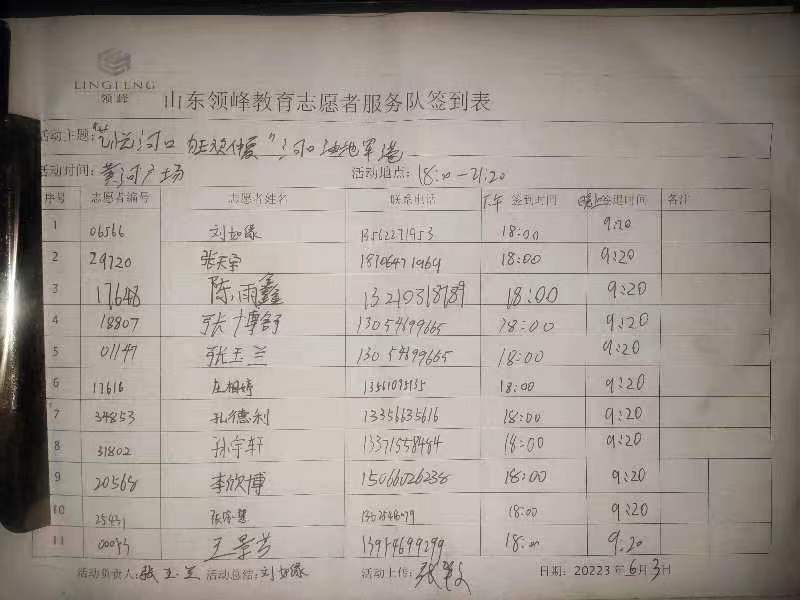 LINGFENG
领峰
山东领峰教育志愿者服务队签到表
活动主题:"艺悦河口 "河口
活动时间: 黄河广场 活动地点: 18:00—21:20
序号 志愿者编号 志愿者姓名 联系电话 下午 签到时间 晚上 签退时间 备注
1 06566 刘如缘 13562271953 18:00 9:20
2 29720 18:00 9:20
3 17648 陈雨鑫 18:00 9:20
4 18807 张博舒 13054699665 18:00 9:20
5 01147 张玉兰 13054699665 18:00 9:20
6 17616 18:00 9:20
7 34853 孔德利 13356635616 18:00 9:20
8 31802 孙宇轩 13371558484 18:00 9:20
9 20568 李欣博 15066026238 18:00 9:20
10 25431 18:00 9:20
11 王景芳 18:00 9:20
活动负责人: 张玉兰 活动总结: 刘如缘 活动上传: 日期: 20223年6月3日